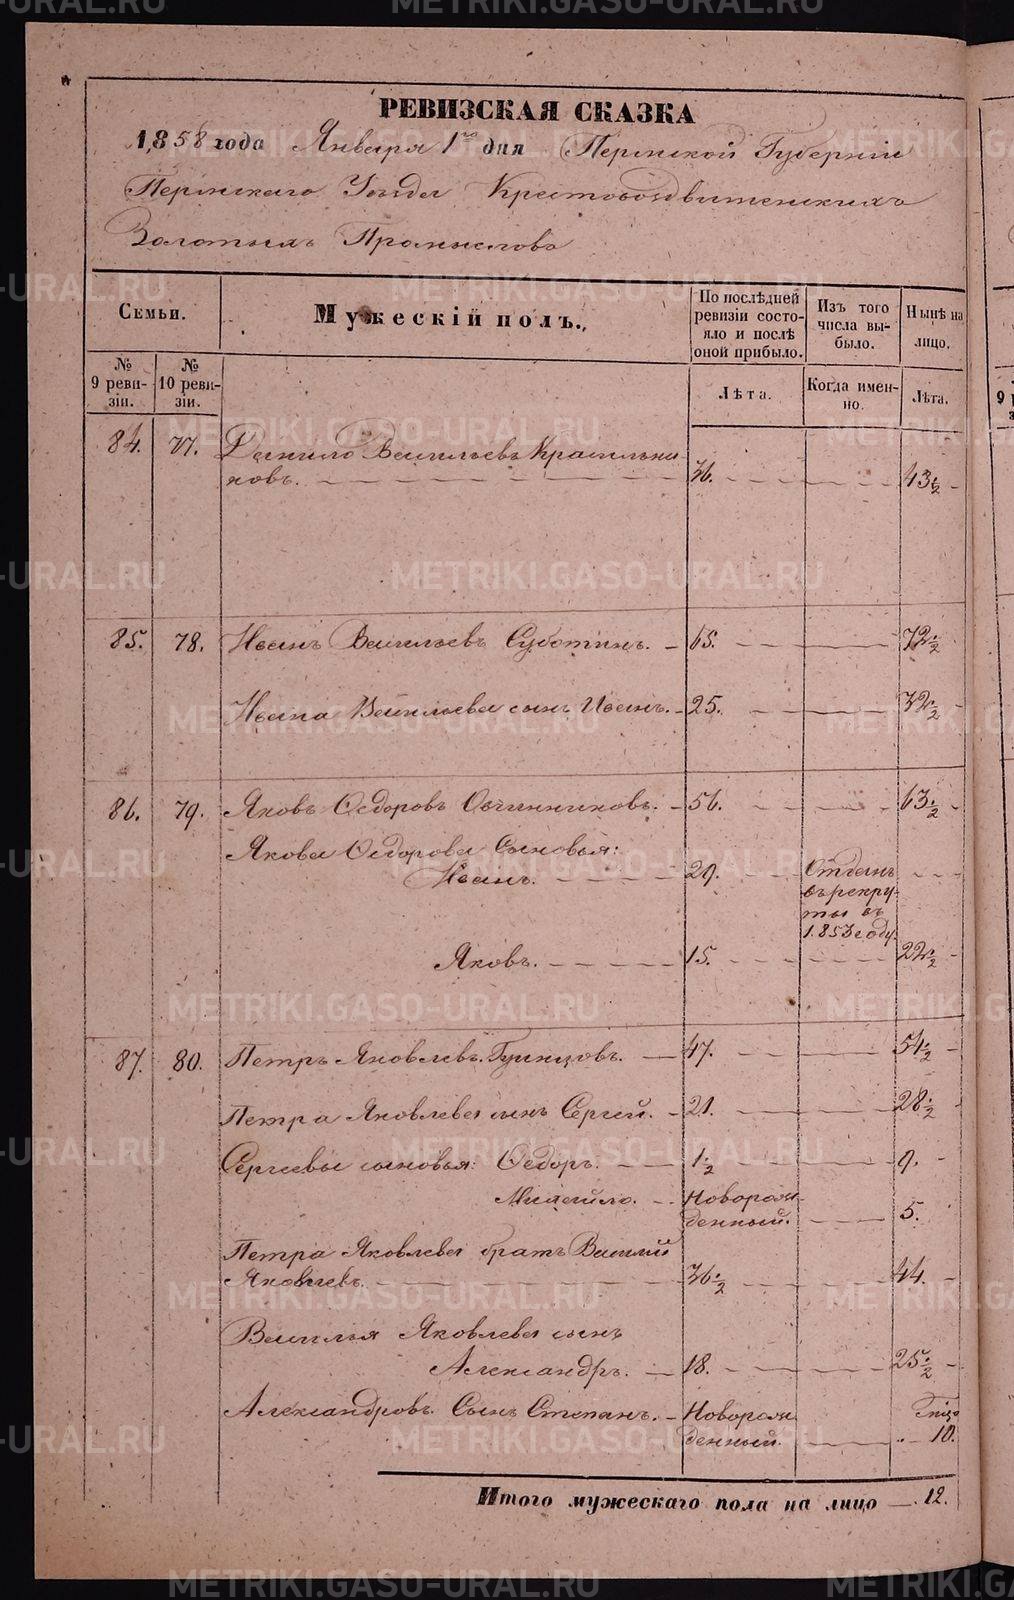 РЕВИЗСКАЯ СКАЗКА
1858 года Января 1го дня Пермской Губернiи
Пермскаго Уѣзда Крестовоздвиженскихъ
Золотыхъ Промысловъ
Семьи.
№ 9 ревизiи.
№ 10 ревизiи.
Мужескiй полъ.
По послѣдней ревизiи состояло и послѣ оной прибыло.
Изъ того числа выбыло.
Нынѣ на лицо.
Лѣта.
Когда именно.
Лѣта.
84. 77. Данило Васильевъ Красильни-
ковъ. 36. 43½
85. 78. Иванъ Васильевъ Суботинъ. 65. 72½
Ивана Васильева сынъ Иванъ. 25. 32½
86. 79. Яковъ Ѳедоровъ Овчинниковъ. 56. 63½
Якова Ѳедорова Сыновья:
Иванъ. 29. Отданъ
въ рекру-
ты въ
1853 году.
Яковъ. 15. 22½
87. 80. Петръ Яковлевъ 47. 54½
Петра Яковлева сынъ Сергей. 21. 28½
Сергѣевы сыновья: Ѳедоръ. ½ 9.
Михайло. Новорож-
денный. 5.
Петра Яковлева братъ Василiй
Яковлевъ. 36½ 44.
Василья Яковлева сынъ
Александръ. 18. 25½
Александровъ Сынъ Степанъ. Новорож
денный. 10.
Итого мужескаго пола на лицо 12.
METRIKI.GASO-URAL.RU